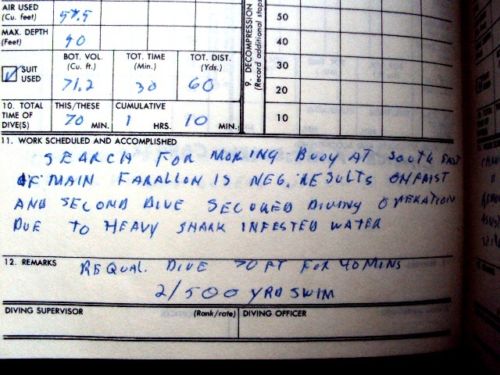 AIR USED (Cu. feet) 57.5
MAX. DEPTH (Feet) 90
SUIT USED
BOT. VOL. (Cu. ft.) 71.2
TOT. TIME (Min.) 30
TOT. DIST. (Yds.) 60
10. TOTAL TIME OF DIVE(S)
THIS/THESE 70 MIN.
CUMULATIVE 1 HRS. 10 MIN.
9. DECOMPRESSION
(Record additional stops
50
40
30
20
10
11. WORK SCHEDULED AND ACCOMPLISHED
SEARCH FOR MORING BUOY AT SOUTH
OF MAIN FARALLON IS NEG. RESULTS ON FRIST
AND SECOND DIVE SECURED DIVING OPERATION
DUE TO HEAVY SHARK INFESTED WATER
12. REMARKS REQUAL. DIVE 70 FT FOR 40 MINS
2/500 YRD SWIM
DIVING SUPERVISOR (Rank/rate) DIVING OFFICER